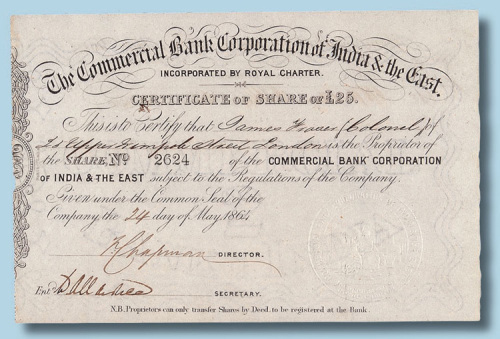 The Commercial Bank Corporation of India & the East.
INCORPORATED BY ROYAL CHARTER.
CERTIFICATE OF SHARE OF £25.
This is to Certify that James Fraser (Colonel) of
Upper Wimpole Street London is the Proprietor of
the SHARE No 2624 of the COMMERCIAL BANK CORPORATION
OF INDIA & THE EAST subject to the Regulations of the Company.
Given under the Common Seal of the
Company the 24 day of May 1864
Chapman DIRECTOR.
Entd
SECRETARY.
N.B. Proprietors can only transfer Shares by Deed, to be registered at the Bank.